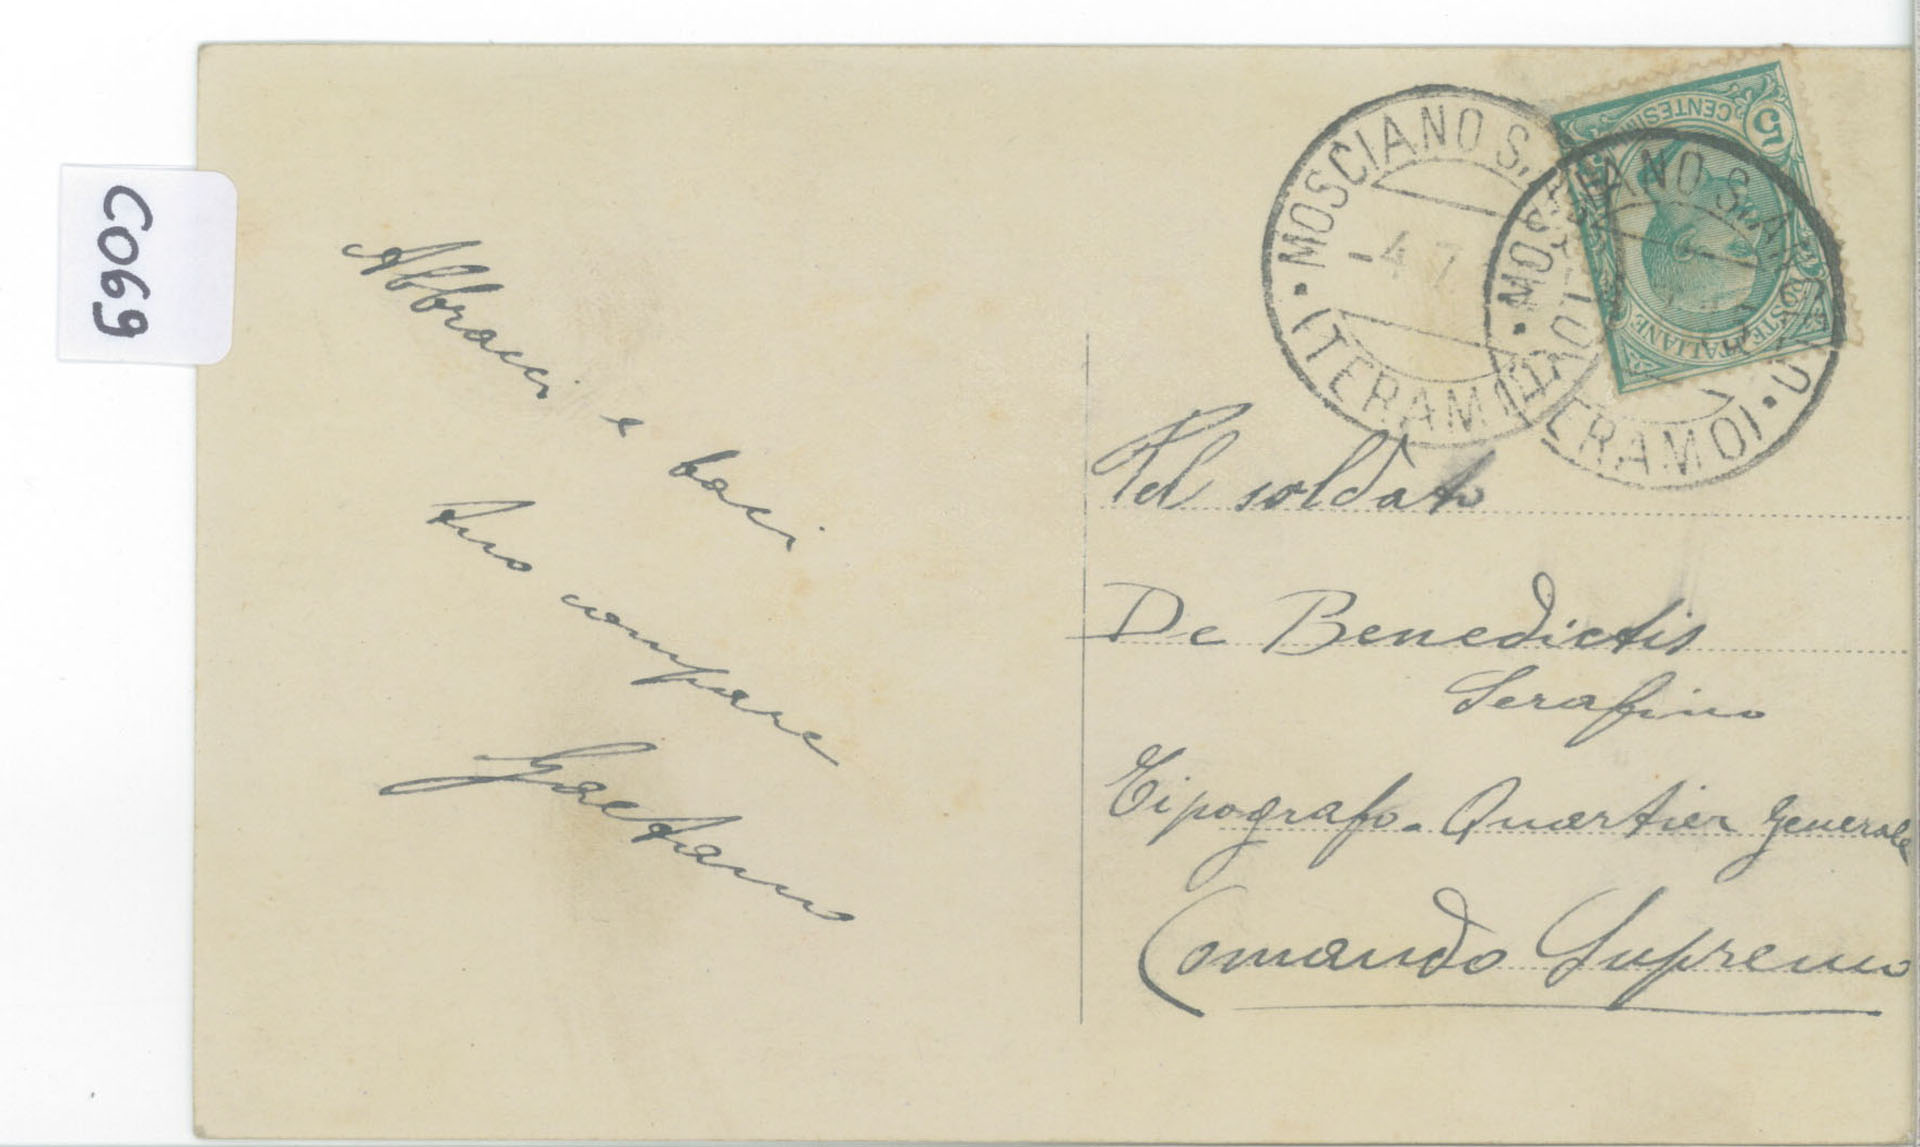 C069
Abbracci e baci
tuo compare
Gaetano
MOSCIANO S. ANGELO
(TERAMO)
-4 7
MOSCIANO S. ANGELO
(TERAMO)
5
CENTESIMI
POSTE ITALIANE
Pel soldato
De Benedictis
Serafino
Tipografo - Quartier Generale
Comando Supremo